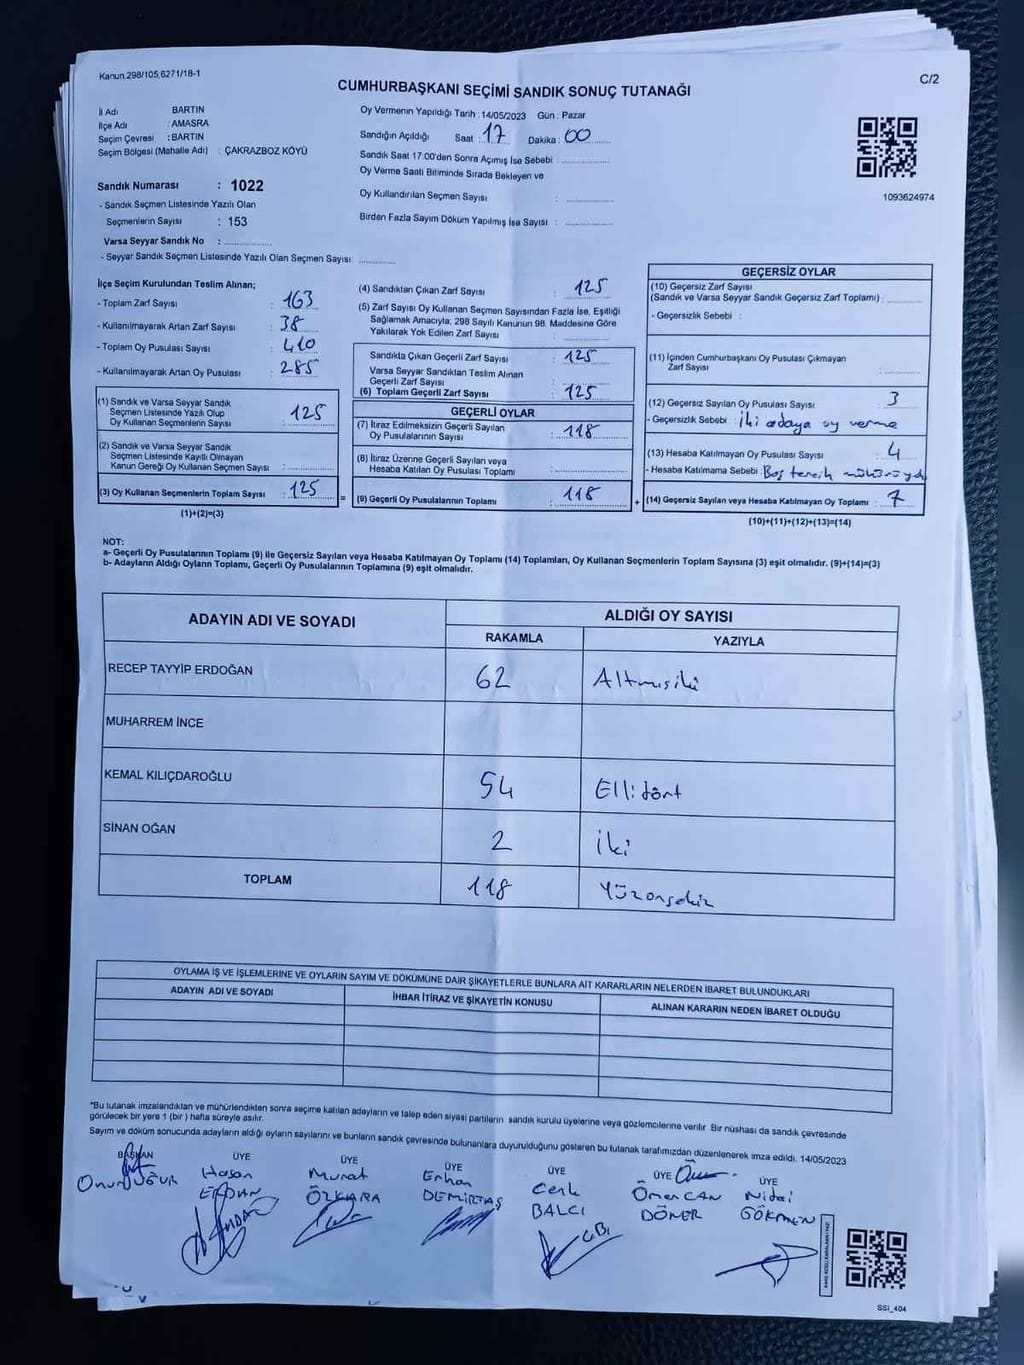 Kanun.298/105,6271/18-1
C/2
CUMHURBAŞKANI SEÇİMİ SANDIK SONUÇ TUTANAĞI
İl Adı BARTIN
İlçe Adı : AMASRA
Seçim Çevresi : BARTIN
Seçim Bölgesi (Mahalle Adı) : ÇAKRAZBOZ KÖYÜ
Oy Vermenin Yapıldığı Tarih : 14/05/2023 Gün : Pazar
Sandığın Açıldığı Saat : 17 Dakika : 00
Sandık Saat 17:00'den Sonra Açılmış İse Sebebi :
Oy Verme Saati Bitiminde Sırada Bekleyen ve
Oy Kullandırılan Seçmen Sayısı :
Birden Fazla Sayım Döküm Yapılmış İse Sayısı :
1093624974
Sandık Numarası : 1022
- Sandık Seçmen Listesinde Yazılı Olan
Seçmenlerin Sayısı : 153
Varsa Seyyar Sandık No :
- Seyyar Sandık Seçmen Listesinde Yazılı Olan Seçmen Sayısı :
İlçe Seçim Kurulundan Teslim Alınan;
- Toplam Zarf Sayısı : 163
- Kullanılmayarak Artan Zarf Sayısı : 38
- Toplam Oy Pusulası Sayısı : 410
- Kullanılmayarak Artan Oy Pusulası : 285
(1) Sandık ve Varsa Seyyar Sandık
Seçmen Listesinde Yazılı Olup
Oy Kullanan Seçmenlerin Sayısı : 125
(2) Sandık ve Varsa Seyyar Sandık
Seçmen Listesinde Kayıtlı Olmayan
Kanun Gereği Oy Kullanan Seçmen Sayısı :
(3) Oy Kullanan Seçmenlerin Toplam Sayısı : 125
(1)+(2)=(3)
(4) Sandıktan Çıkan Zarf Sayısı : 125
(5) Zarf Sayısı Oy Kullanan Seçmen Sayısından Fazla İse, Eşitliği
Sağlamak Amacıyla, 298 Sayılı Kanunun 98. Maddesine Göre
Yakılarak Yok Edilen Zarf Sayısı :
Sandıkta Çıkan Geçerli Zarf Sayısı : 125
Varsa Seyyar Sandıktan Teslim Alınan
Geçerli Zarf Sayısı :
(6) Toplam Geçerli Zarf Sayısı : 125
GEÇERLİ OYLAR
(7) İtiraz Edilmeksizin Geçerli Sayılan
Oy Pusulalarının Sayısı : 118
(8) İtiraz Üzerine Geçerli Sayılan veya
Hesaba Katılan Oy Pusulası Toplamı :
= (9) Geçerli Oy Pusulalarının Toplamı : 118 +
GEÇERSİZ OYLAR
(10) Geçersiz Zarf Sayısı
(Sandık ve Varsa Seyyar Sandık Geçersiz Zarf Toplamı) :
- Geçersizlik Sebebi :
(11) İçinden Cumhurbaşkanı Oy Pusulası Çıkmayan
Zarf Sayısı :
(12) Geçersiz Sayılan Oy Pusulası Sayısı : 3
- Geçersizlik Sebebi : İki adaya oy verme
(13) Hesaba Katılmayan Oy Pusulası Sayısı : 4
- Hesaba Katılmama Sebebi : Boş tercih
(14) Geçersiz Sayılan veya Hesaba Katılmayan Oy Toplamı : 7
(10)+(11)+(12)+(13)=(14)
NOT:
a- Geçerli Oy Pusulalarının Toplamı (9) ile Geçersiz Sayılan veya Hesaba Katılmayan Oy Toplamı (14) Toplamları, Oy Kullanan Seçmenlerin Toplam Sayısına (3) eşit olmalıdır. (9)+(14)=(3)
b- Adayların Aldığı Oyların Toplamı, Geçerli Oy Pusulalarının Toplamına (9) eşit olmalıdır.
ADAYIN ADI VE SOYADI ALDIĞI OY SAYISI
RAKAMLA YAZIYLA
RECEP TAYYİP ERDOĞAN 62 Altmışiki
MUHARREM İNCE
KEMAL KILIÇDAROĞLU 54 Ellidört
SİNAN OĞAN 2 iki
TOPLAM 118 Yüzonsekiz
OYLAMA İŞ VE İŞLEMLERİNE VE OYLARIN SAYIM VE DÖKÜMÜNE DAİR ŞİKAYETLERLE BUNLARA AİT KARARLARIN NELERDEN İBARET BULUNDUKLARI
ADAYIN ADI VE SOYADI İHBAR İTİRAZ VE ŞİKAYETİN KONUSU ALINAN KARARIN NEDEN İBARET OLDUĞU
*Bu tutanak imzalandıktan ve mühürlendikten sonra seçime katılan adayların ve talep eden siyasi partilerin sandık kurulu üyelerine veya gözlemcilerine verilir. Bir nüshası da sandık çevresinde
görülecek bir yere 1 (bir) hafta süreyle asılır.
Sayım ve döküm sonucunda adayların aldığı oyların sayılarını ve bunların sandık çevresinde bulunanlara duyurulduğunu gösteren bu tutanak tarafımızdan düzenlenerek imza edildi. 14/05/2023
BAŞKAN ÜYE ÜYE ÜYE ÜYE ÜYE ÜYE
Onur UĞUR Hasan Murat Erhan Cenk Ömer CAN Nidai
ERDAN ÖZKARA DEMİRTAŞ BALCI DÖNER GÖKMEN
SSİ_404